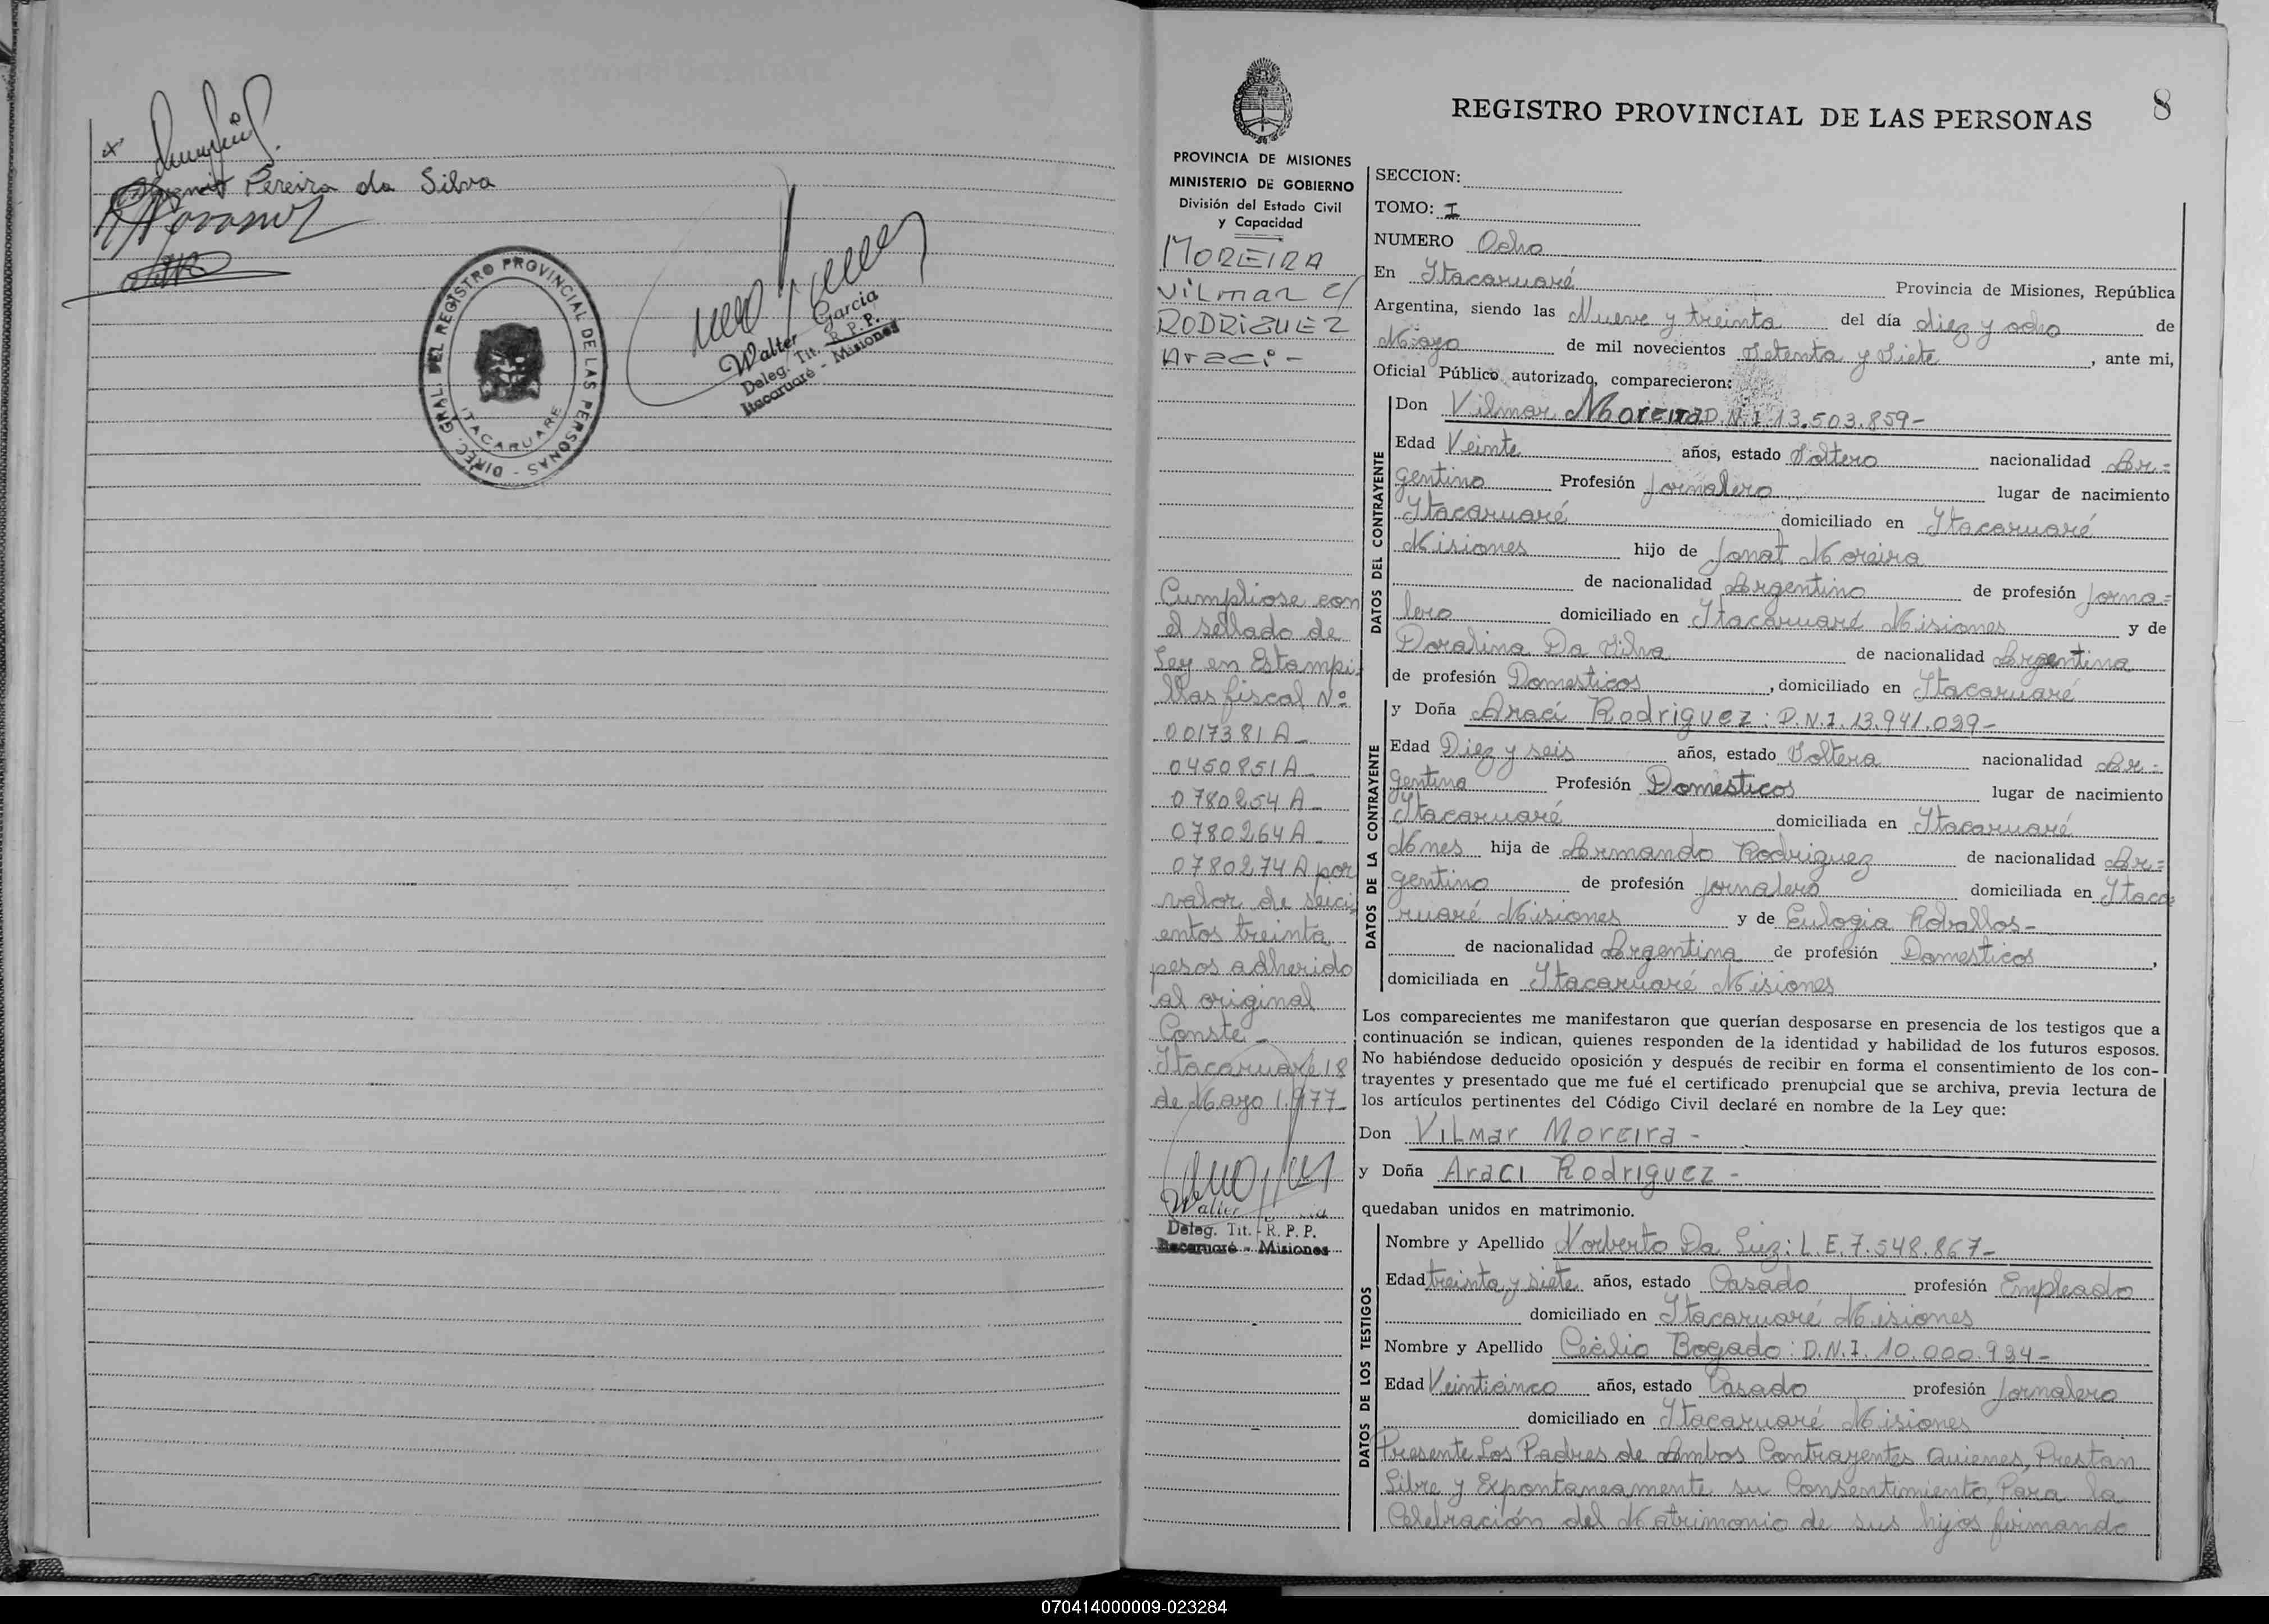 Pereira da Silva
DIREC. GRAL. DEL REGISTRO PROVINCIAL DE LAS PERSONAS -
ITACARUARE
Walter Garcia
Deleg. Tit. R. P. P.
Itacaruaré - Misiones
8
REGISTRO PROVINCIAL DE LAS PERSONAS
PROVINCIA DE MISIONES
MINISTERIO DE GOBIERNO
División del Estado Civil
y Capacidad
MOREIRA
Vilmar c/
RODRIGUEZ
Araci -
Cumpliose con
el sellado de
Ley en Estampi=
llas fiscal Nº
0017381 A -
0450851 A -
0780254 A -
0780264 A -
0780274 A por
valor de seici
entos treinta
pesos adherido
al original
Conste -
Itacaruaré 18
de Mayo 1.977 -
Walter
Deleg. Tit. - R. P. P.
Itacaruaré - Misiones
SECCION:
TOMO: I
NUMERO Ocho
En Itacaruaré Provincia de Misiones, República
Argentina, siendo las Nueve y treinta del día diez y ocho de
Mayo de mil novecientos Setenta y Siete, ante mi,
Oficial Público autorizado, comparecieron:
DATOS DEL CONTRAYENTE
Don Vilmar Moreira D.N.I. 13.503.859 -
Edad Veinte años, estado Soltero nacionalidad Ar=
gentino Profesión Jornalero lugar de nacimiento
Itacaruaré domiciliado en Itacaruaré
Misiones hijo de Jonat Moreira
de nacionalidad Argentino de profesión Jorna=
lero domiciliado en Itacaruaré Misiones y de
Doralina Da Silva de nacionalidad Argentina
de profesión Domesticos, domiciliado en Itacaruaré
DATOS DE LA CONTRAYENTE
y Doña Araci Rodriguez: D.N.I. 13.941.029 -
Edad Diez y seis años, estado Soltera nacionalidad Ar=
gentina Profesión Domesticos lugar de nacimiento
Itacaruaré domiciliada en Itacaruaré
Mnes hija de Armando Rodriguez de nacionalidad Ar=
gentino de profesión Jornalero domiciliada en Itaca
ruaré Misiones y de Eulogia Roballos -
de nacionalidad Argentina de profesión Domesticos,
domiciliada en Itacaruaré Misiones
Los comparecientes me manifestaron que querían desposarse en presencia de los testigos que a
continuación se indican, quienes responden de la identidad y habilidad de los futuros esposos.
No habiéndose deducido oposición y después de recibir en forma el consentimiento de los con-
trayentes y presentado que me fué el certificado prenupcial que se archiva, previa lectura de
los artículos pertinentes del Código Civil declaré en nombre de la Ley que:
Don Vilmar Moreira -
y Doña Araci Rodriguez -
quedaban unidos en matrimonio.
DATOS DE LOS TESTIGOS
Nombre y Apellido Norberto Da Luz: L.E. 7.548.867 -
Edad treinta y siete años, estado Casado profesión Empleado
domiciliado en Itacaruaré Misiones
Nombre y Apellido Cecilio Bogado: D.N.I. 10.000.924 -
Edad Veinticinco años, estado Casado profesión Jornalero
domiciliado en Itacaruaré Misiones
Presente Los Padres de Ambos Contrayentes Quienes, Prestan
Libre y Expontaneamente su Consentimiento Para la
Celebración del Matrimonio de sus hijos firmando
070414000009-023284